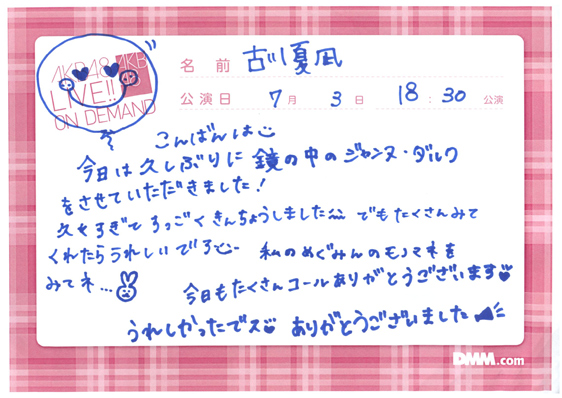 AKB48
LIVE!!
ON DEMAND
AKB
名前 古川夏凪
公演日 7月 3日 18:30 公演
こんばんは
今日は久しぶりに鏡の中のジャンヌ・ダルク
をさせていただきました!
久々すぎてすっごくきんちょうしました でもたくさんみて
くれたらうれしいです 私のめぐみんのモノマネを
みてネ...
今日もたくさんコールありがとうございます
うれしかったでス ありがとうございました
DMM.com